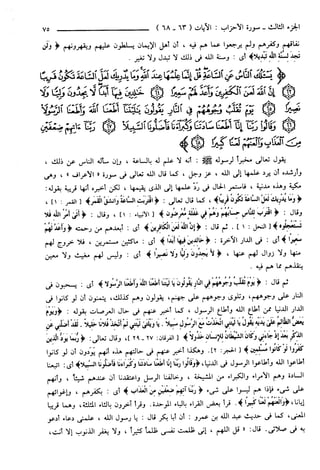 الجزء الثالث - سورة الأحزاب : الآيات ( ٦٣ - ٦٨ ) ٧٥
نفاقهم وكفرهم ولم يرجعوا عما هم فيه ، أن أهل الإيمان يسلطون عليهم ويقهرونهم ﴿ ولن
تجد لسنة الله تبديلا ﴾ أى : وسنة الله فى ذلك لا تبدل ولا تغير .
يَسْئَلُكَ النَّاسُ عَنِ السَّاعَةِ قُلْ إِنَّمَا عِلْمُهَا عِندَ اللَّهِ وَمَا يُدْرِيكَ لَعَلَّ السَّاعَةَ تَكُونُ قَرِيبًا
إِنَّ اللَّهَ لَعَنَ الْكَافِرِينَ وَأَعَدَّ لَهُمْ سَعِيرًا خَالِدِينَ فِيهَا أَبَدًا لَّا يَجِدُونَ وَلِيًّا وَلَا نَصِيرًا
يَوْمَ تُقَلَّبُ وُجُوهُهُمْ فِي النَّارِ يَقُولُونَ يَا لَيْتَنَا أَطَعْنَا اللَّهَ وَأَطَعْنَا الرَّسُولَا
وَقَالُوا رَبَّنَا إِنَّا أَطَعْنَا سَادَتَنَا وَكُبَرَاءَنَا فَأَضَلُّونَا السَّبِيلَا رَبَّنَا آتِهِمْ ضِعْفَيْنِ
مِنَ الْعَذَابِ وَالْعَنْهُمْ لَعْنًا كَبِيرًا
يقول تعالى مخبراً لرسوله ﷺ : أنه لا علم له بالساعة ، وإن سأله الناس عن ذلك ،
وأرشده أن يرد علمها إلى الله ، عز وجل ، كما قال الله تعالى فى سورة « الأعراف » ، وهى
مكية وهذه مدنية ، فاستمر الحال فى رد علمها إلى الذى يقيمها ، لكن أخبره أنها قريبة بقوله :
﴿ وما يدريك لعل الساعة تكون قريبا ﴾ ، كما قال تعالى : ﴿ اقتربت الساعة وانشق القمر ﴾ [ القمر : ١ ] ،
وقال : ﴿ اقترب للناس حسابهم وهم في غفلة معرضون ﴾ [ الأنبياء : ١ ] ، وقال : ﴿ أتى أمر الله فلا
تستعجلوه ﴾ [ النحل : ١ ] . ثم قال : ﴿ إن الله لعن الكافرين ﴾ أى : أبعدهم من رحمته ﴿ وأعد لهم
سعيرا ﴾ أى : فى الدار الآخرة : ﴿ خالدين فيها أبدا ﴾ أى : ماكثين مستمرين ، فلا خروج لهم
منها ولا زوال لهم عنها ، ﴿ لا يجدون وليا ولا نصيرا ﴾ أى : وليس لهم مغيث ولا معين
ينقذهم مما هم فيه .
ثم قال : ﴿ يوم تقلب وجوههم في النار يقولون يا ليتنا أطعنا الله وأطعنا الرسولا ﴾ أى : يسحبون فى
النار على وجوههم ، وتلوى وجوههم على جهنم ، يقولون وهم كذلك ، يتمنون أن لو كانوا فى
الدار الدنيا ممن أطاع الله وأطاع الرسول ، كما أخبر عنهم فى حال العرصات بقوله : ﴿ ويوم
يعض الظالم على يديه يقول يا ليتني اتخذت مع الرسول سبيلا . يا ويلتى ليتني لم أتخذ فلانا خليلا . لقد أضلني عن
الذكر بعد إذ جاءني وكان الشيطان للإنسان خذولا ﴾ [ الفرقان : ٢٧ - ٢٩ ] ، وقال تعالى : ﴿ ربما يود الذين
كفروا لو كانوا مسلمين ﴾ [ الحجر : ٢ ] . وهكذا أخبر عنهم فى حالتهم هذه أنهم يودون أن لو كانوا
أطاعوا الله وأطاعوا الرسول فى الدنيا، ﴿ وقالوا ربنا إنا أطعنا سادتنا وكبراءنا فأضلونا السبيلا ﴾ أى : اتبعنا
السادة وهم الأمراء والكبراء من المشيخة ، وخالفنا الرسل واعتقدنا أن عندهم شيئاً ، وأنهم
على شىء فإذا هم ليسوا على شىء ﴿ ربنا آتهم ضعفين من العذاب ﴾ أى : بكفرهم ، وإغوائهم
إيانا ، ﴿ والعنهم لعنا كبيرا ﴾ . قرأ بعض القراء بالباء الموحدة . وقرأ آخرون بالثاء المثلثة ، وهما قريبا
المعنى، كما فى حديث عبد الله بن عمرو : أن أبا بكر قال : يا رسول الله ، علمنى دعاء أدعو
به فى صلاتى . قال : « قل اللهم ، إنى ظلمت نفسى ظلماً كثيراً ، ولا يغفر الذنوب إلا أنت،